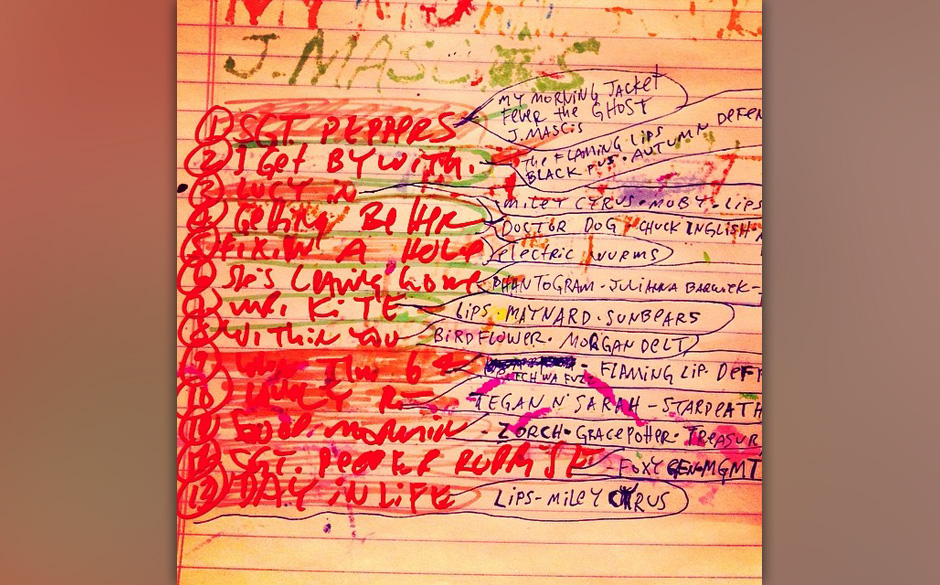 MY
J. MASCIS
① SGT. PEPPERS
MY MORNING JACKET
FEVER THE GHOST
J. MASCIS
② I Get BY WITH.
THE FLAMING LIPS
BLACK PUS • AUTUMN DEFEN
③ LUCY IN
MILEY CYRUS • MOBY • LIPS
④ GETTING BETTER
DOCTOR DOG • CHUCK INGLISH •
⑤ FIXIN A HOLE
electric WURMS
⑥ She's Leaving home
PHANTOGRAM - JULIANNA BARWICK -
⑦ MR. KITE
LIPS • MAYNARD • SUNBEARS
⑧ WITHIN YOU
BIRDFLOWER • MORGAN DELT
⑨ When I'm 64
- FLAMING LIP • DEF
⑩
TEGAN N' SARAH - STARDEATH
⑪ GOOD MORNIN
- ZORCH • GRACE POTTER • TREASUR
⑫ SGT. PEPPER
- FOXYGEN • MGMT
⑬ DAY IN LIFE
LIPS - MILEY CYRUS